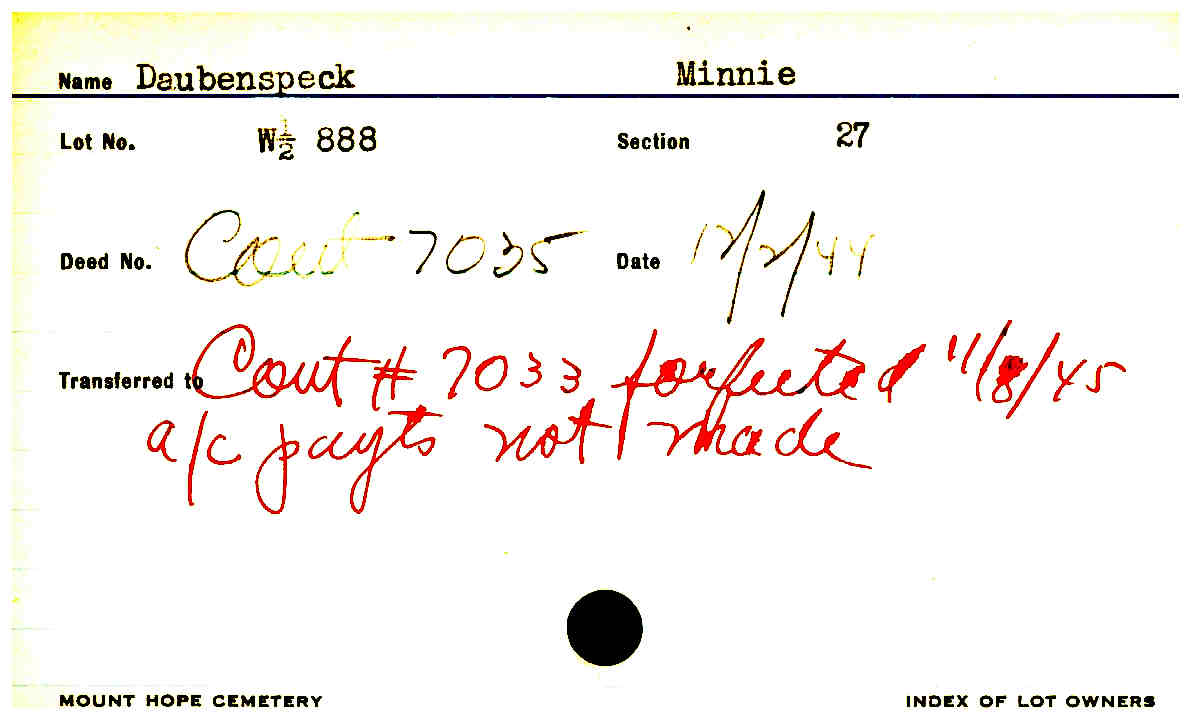 Name Daubenspeck Minnie
Lot No. W½ 888 Section 27
Deed No. Cont 7035 Date 12/2/44
Transferred to Cont # 7033 forfeited 11/8/45
a/c payts not made
MOUNT HOPE CEMETERY INDEX OF LOT OWNERS